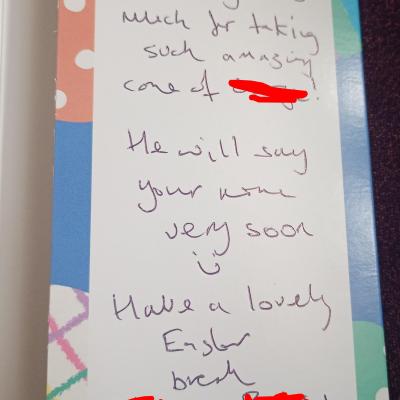 much for taking
such amazing
care of
He will say
your name
very soon
Have a lovely
Easter
break